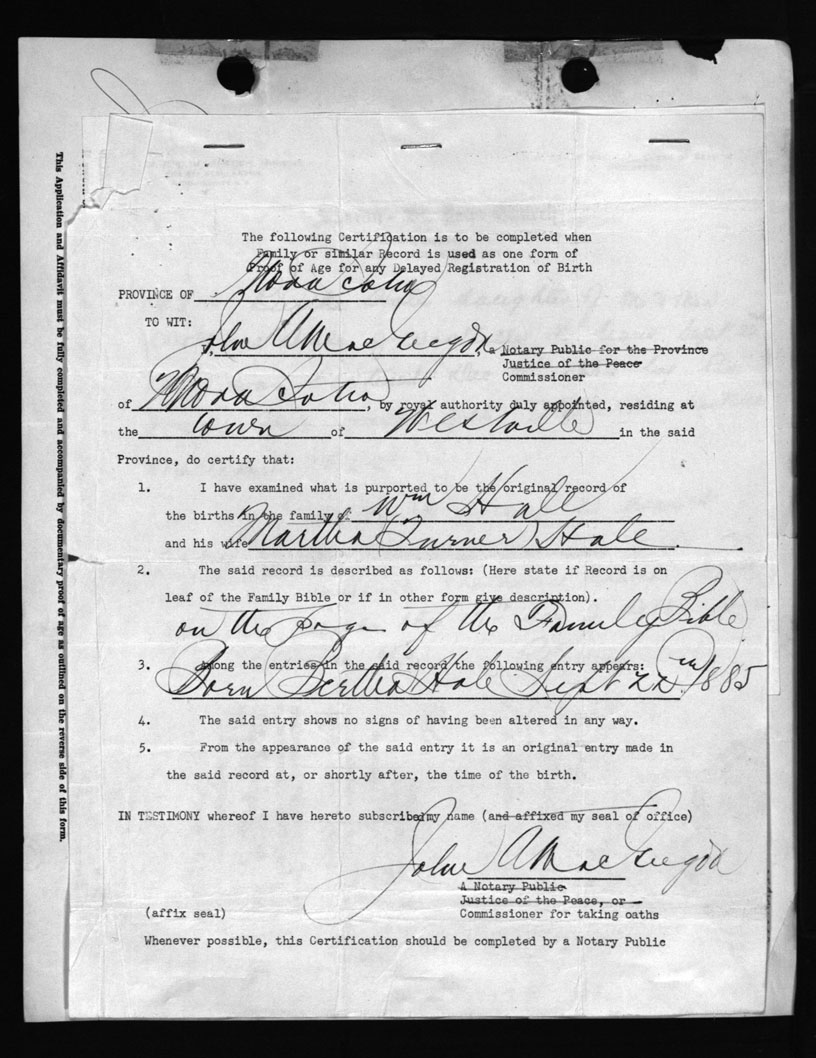 The following Certification is to be completed when
Family or similar Record is used as one form of
Proof of Age for any Delayed Registration of Birth
PROVINCE OF Nova Scotia
TO WIT:
I, John A MacGregor, a Notary Public for the Province
Justice of the Peace
Commissioner
of Nova Scotia, by royal authority duly appointed, residing at
the town of Westville in the said
Province, do certify that:
1. I have examined what is purported to be the original record of
the births in the family of Wm Hale
and his wife Martha (Turner) Hale.
2. The said record is described as follows: (Here state if Record is on
leaf of the Family Bible or if in other form give description).
on the page of the Family Bible
3. Among the entries in the said record the following entry appears:
Born Bertha Hale Sept 22nd 1885
4. The said entry shows no signs of having been altered in any way.
5. From the appearance of the said entry it is an original entry made in
the said record at, or shortly after, the time of the birth.
IN TESTIMONY whereof I have hereto subscribed my name (and affixed my seal of office)
John A MacGregor
A Notary Public
Justice of the Peace, or
(affix seal) Commissioner for taking oaths
Whenever possible, this Certification should be completed by a Notary Public
This Application and Affidavit must be fully completed and accompanied by documentary proof of age as outlined on the reverse side of this form.